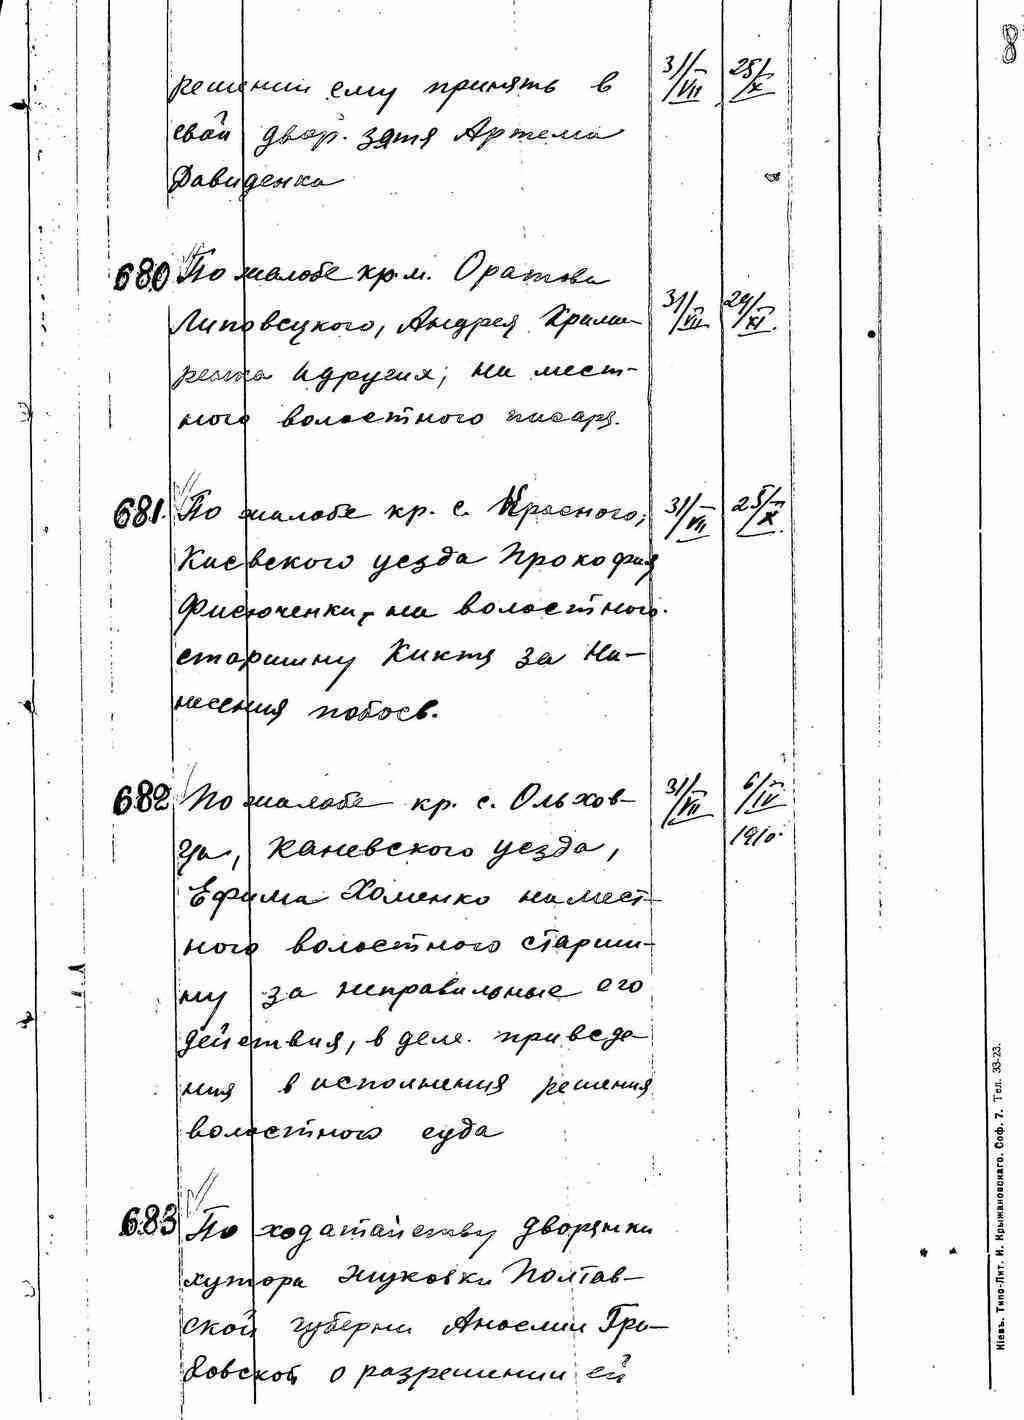 8
решении ему принять в 31/VII 25/X
свой двор. зятя Артема
Давиденка
680 По жалобе кр. м. Оратова
Липовецкого, Андрея 31/VII 24/XI.
и других, на мест-
ного волостного писаря.
681. По жалобе кр. с. Красного, 31/VII 25/X.
Киевского уезда Прокофия
Фисюченки, на волостного
старшину Кикти за на-
несения побоев.
682 По жалобе кр. с. Ольхов- 31/VII 6/IV
ца, Каневского уезда, 1910.
Ефима Хоменко на мест-
ного волостного старши-
ну за неправильные его
действия, в деле приведе
ния в исполнения решения
волостного суда
683 По ходатайству дворянки
хутора Жуковки Полтав-
ской губерни Гра-
бовской о разрешении ей
Кіевъ. Типо-Лит. И. Крыжановскаго. Соф. 7. Тел. 33-23.